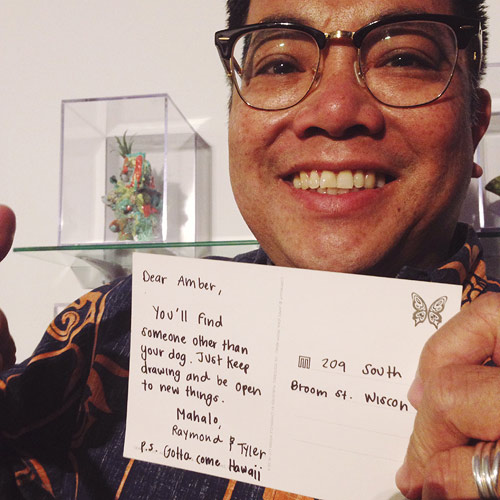 Dear Amber,
You'll find
someone other than
your dog. Just keep
drawing and be open
to new things.
Mahalo,
Raymond & Tyler
p.s. Gotta come Hawaii
209 South
Broom st. Wiscon